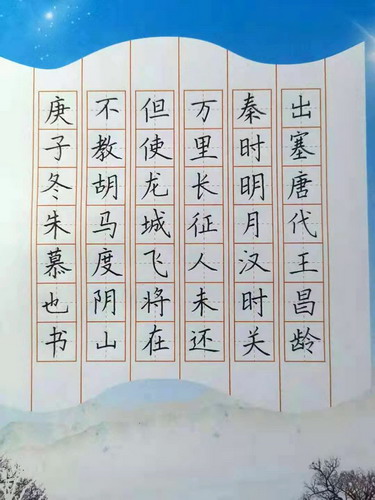 出塞唐代王昌龄
秦时明月汉时关
万里长征人未还
但使龙城飞将在
不教胡马度阴山
庚子冬朱慕也书